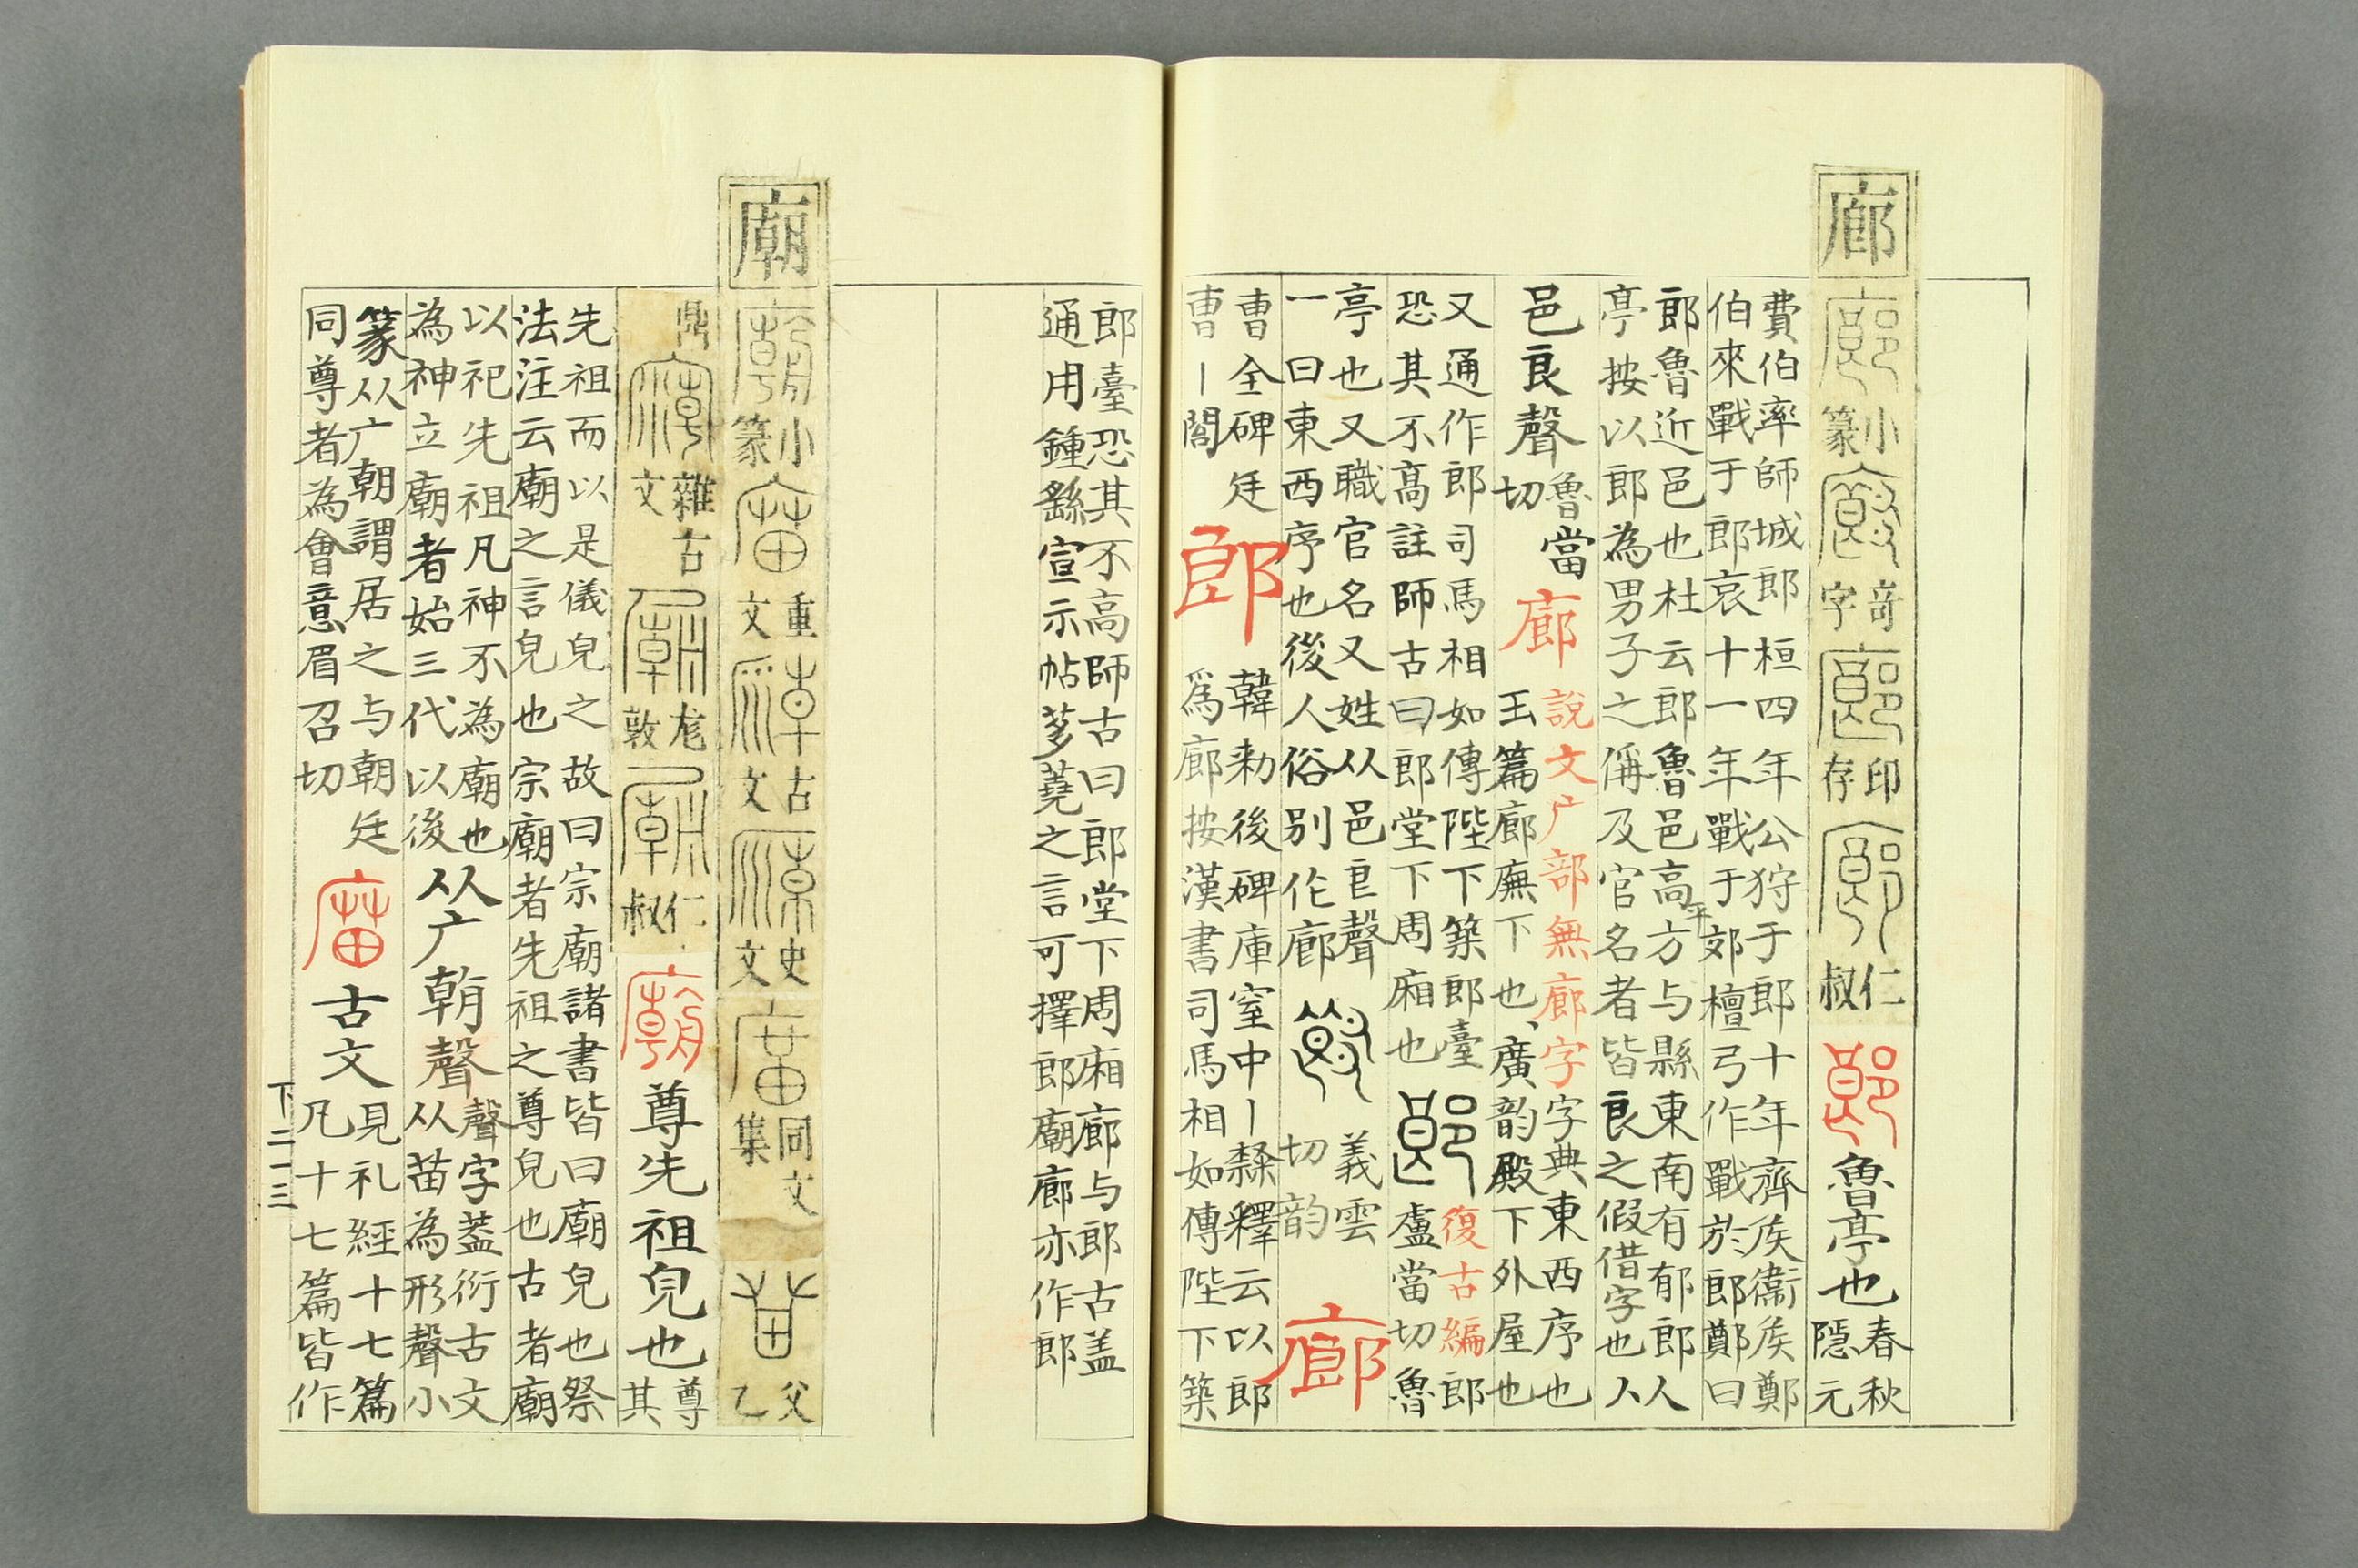 廊 小篆 奇字 印存 仁叔 郎 魯亭也 春秋隱元
費伯率師城郎 桓四年公狩于郎十年齊矦衞矦鄭
伯來戰于郎哀十一年戰于郊檀弓作戰於郎鄭曰
郎魯近邑也杜云郎魯邑高平方与縣東南有郁郎
亭按以郎為男子之偁及官名者皆良之假借字也 从
邑良聲 魯當切 廊 說文广部無廊字 字典東西序也
玉篇廊廡下也、廣韵殿下外屋也
又通作郎司馬相如傳陛下築郎臺
恐其不高註師古曰郎堂下周廂也 郎 復古編郎
盧當切魯
亭也又職官名又姓从邑良聲
一曰東西序也後人俗别作廊 義雲切韵 廊
曹全碑廷
曹丨閤 郎 韓勑後碑庫室中丨隸釋云以郎
爲廊按漢書司馬相如傳陛下築
郎臺恐其不高師古曰郎堂下周廂廊与郎古盖
通用鍾繇宣示帖芻蕘之言可擇郎廟廊亦作郎
廟 小篆 重文 古文 史文 同文集 父乙
鼎 雜古文 尨敦 仁叔 廟 尊先祖皃也 尊其
先祖而以是儀皃之故曰宗廟諸書皆曰廟皃也祭
法注云廟之言皃也宗廟者先祖之尊皃也古者廟
以祀先祖凡神不為廟也
為神立廟者始三代以後 从广朝聲 聲字葢衍古文
从苗為形聲小
篆从广朝謂居之与朝廷
同尊者為會意眉召切 庿 古文 見礼經十七篇
凡十七篇皆作
下二一三